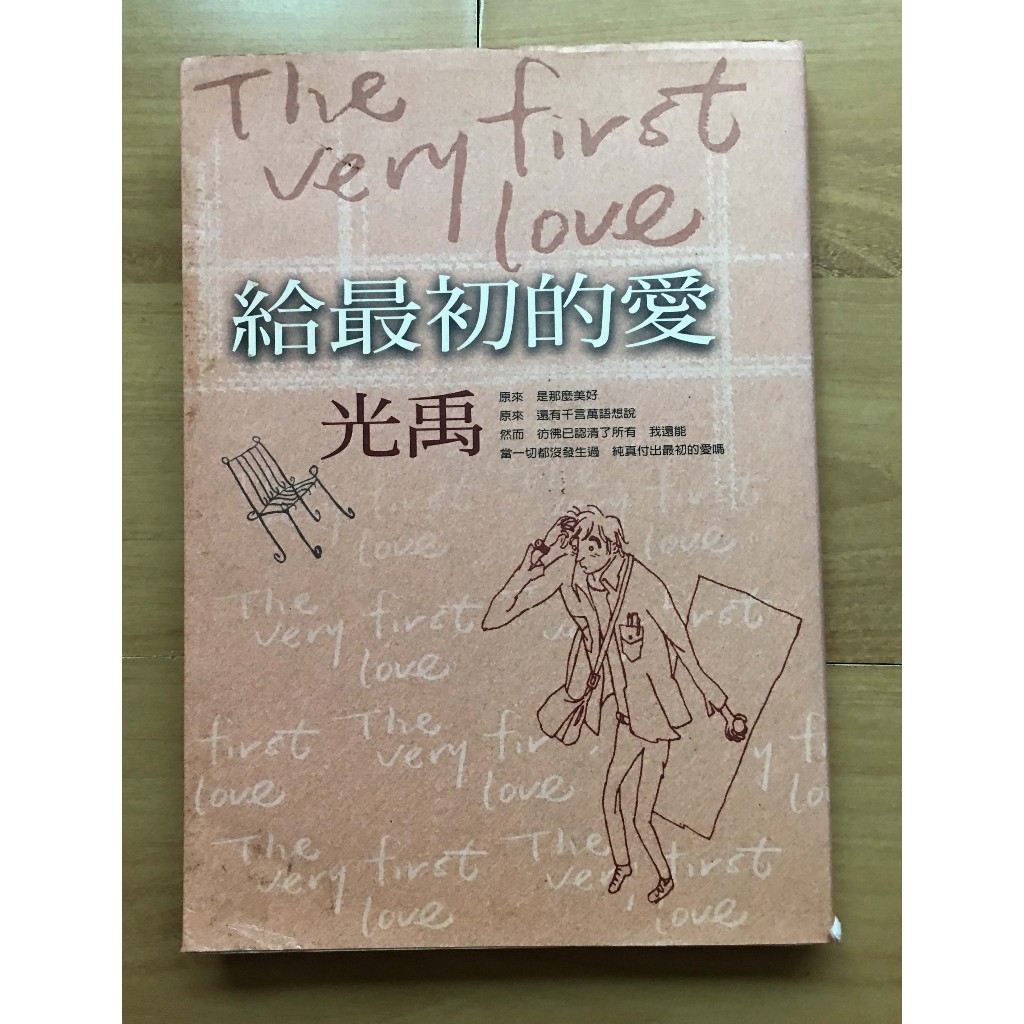 The
very first
love
給最初的愛
光禹
原來 是那麼美好
原來 還有千言萬語想說
然而 彷彿已認清了所有 我還能
當一切都沒發生過 純真付出最初的愛嗎
love
love
The
very first
love
rst
first
love
The
very fir
love
y fi
lo
The
very first
love
The
very first
love